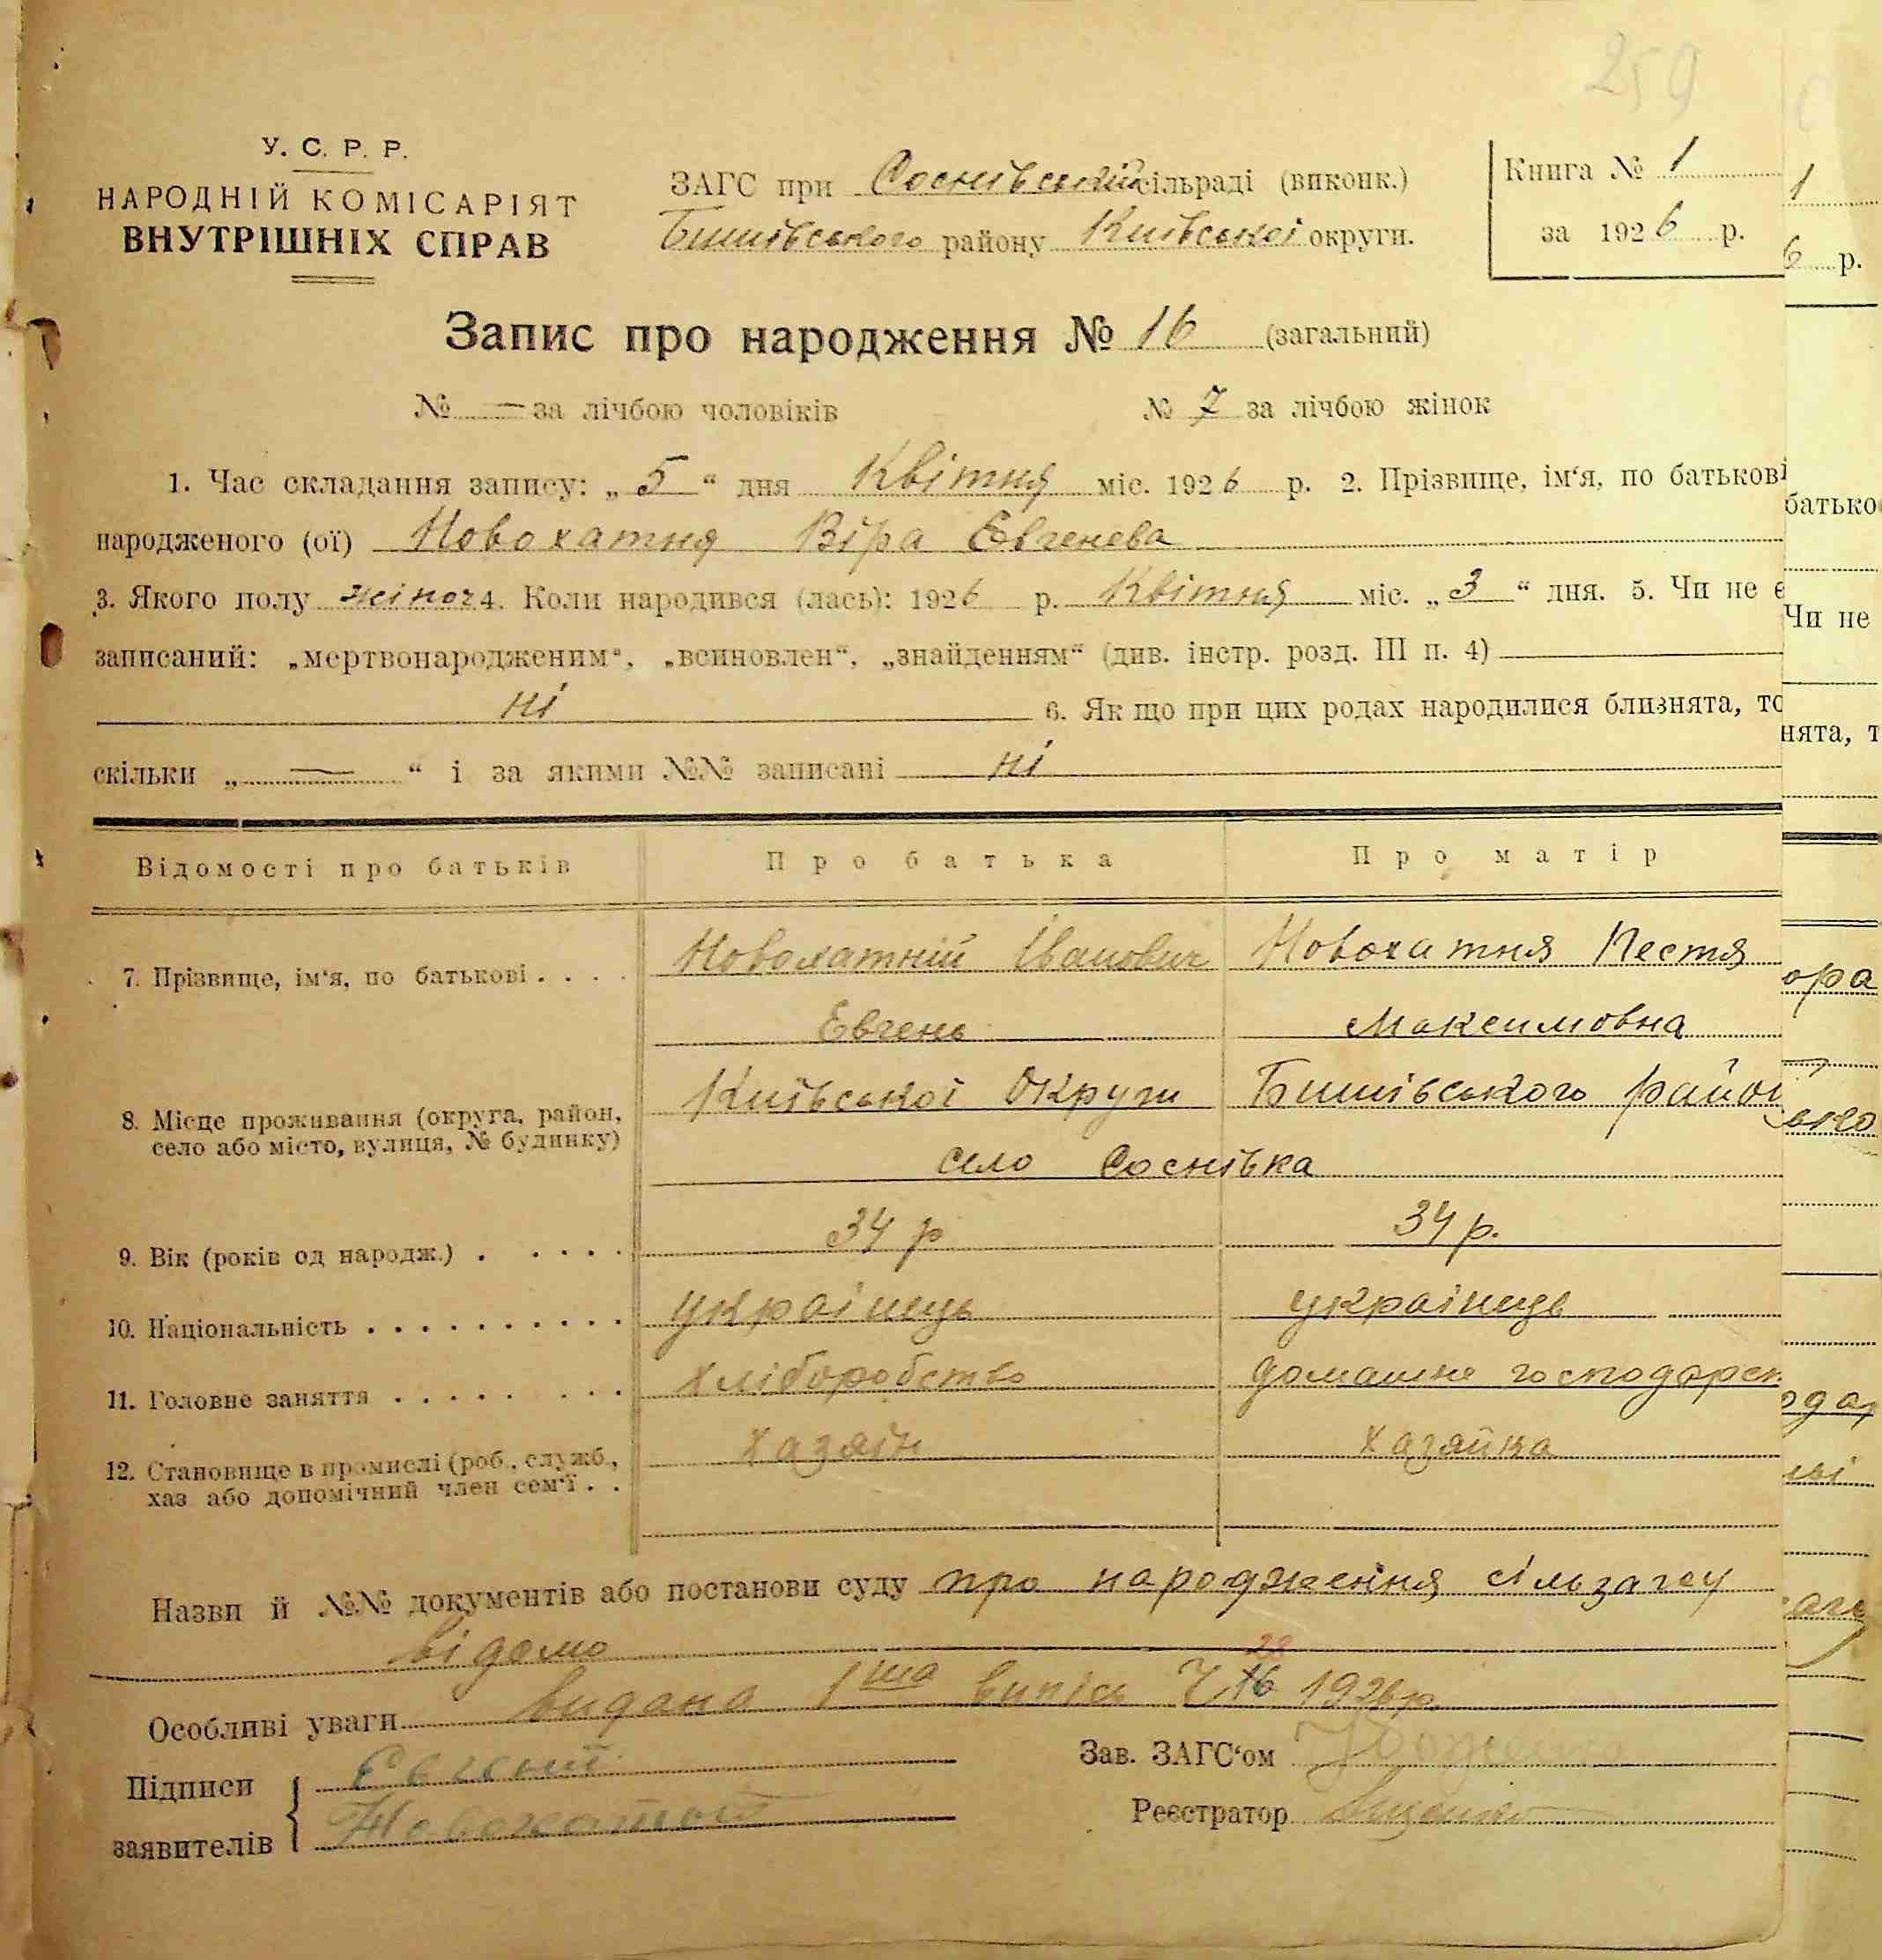 259
У. С. Р. Р.
НАРОДНІЙ КОМІСАРІЯТ
ВНУТРІШНІХ СПРАВ
ЗАГС при Соснівській сільраді (виконк.)
Бишівського району Київської округи.
Книга № 1
за 1926 р.
Запис про народження № 16 (загальний)
№ — за лічбою чоловіків № 7 за лічбою жінок
1. Час складання запису: „ 5 “ дня Квітня міс. 1926 р. 2. Прізвище, ім‘я, по батькові
народженого (ої) Новохатня Віра Евгенева
3. Якого полу жіноч 4. Коли народився (лась): 1926 р. Квітня міс. „ 3 “ дня. 5. Чи не є
записаний: „мертвонародженим“, „всиновлен“, „знайденням“ (див. інстр. розд. III п. 4)
ні 6. Як що при цих родах народилися близнята, то
скільки „ — “ і за якими №№ записані ні
Відомості про батьків Про батька Про матір
7. Прізвище, ім‘я, по батькові . . . . Новохатній Іванович Новохатня Пестя
Евгень Максимовна
8. Місце проживання (округа, район, Київської Округи Бишівського район
село або місто, вулиця, № будинку)
село Соснівка
9. Вік (років од народж.) . . . . . 34 р 34 р.
10. Національність . . . . . . . . . . українець українець
11. Головне заняття . . . . . . . . хліборобство домашнє господарст
12. Становище в промислі (роб., служб., хазяїн хазяйка
хаз або допомічний член сем‘ї . .
Назви й №№ документів або постанови суду про народження сільзагсу
відомо
28
Особливі уваги видана 1ша випись 7 16 1926 р.
Підписи Евгений
заявителів Новохатний
Зав. ЗАГС‘ом
Реєстратор
1
6 р.
батько
Чи не
нята, т
ора